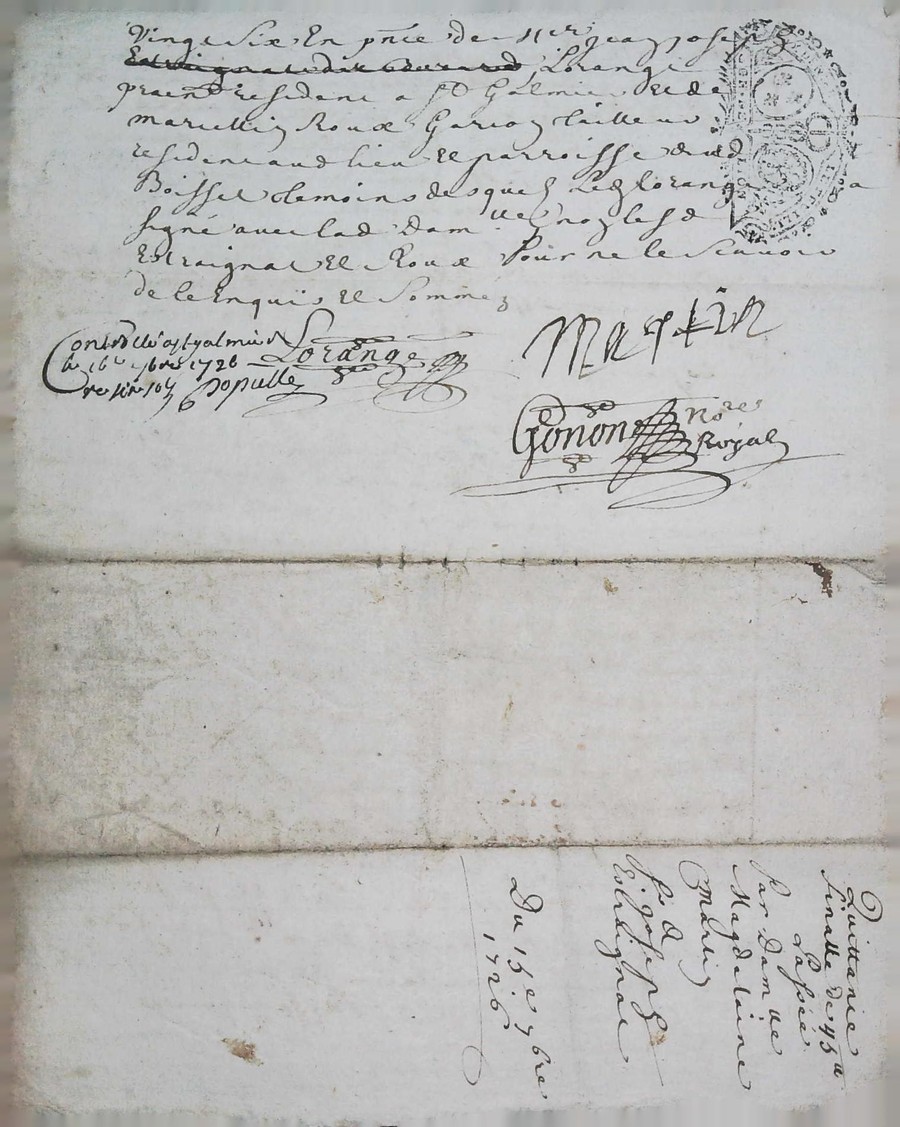 Vingt Six En pñce de Mer Jean joseph
Estraignat dit Lorange
praen residant a St Galmier Et de
marcellin Roux Garcon tailleur
residant aud lieu Et parroisse dud
Boisset temoins desquels Led Lorange a
signé avec lad Damlle non lesd
Estraignat Et Roux Pour ne le Scavoir
de ce Enquis Et Sommés
Controllé a St galmier
le 16e 7bre 1726
Lorange
Martin
Gonon Nore
Royal
Quittance
finalle de 45ll
Passée
Par Damlle
Magdelaine
Martin
a
Sr joseph
Estraignat
Du 15e 7bre
1726